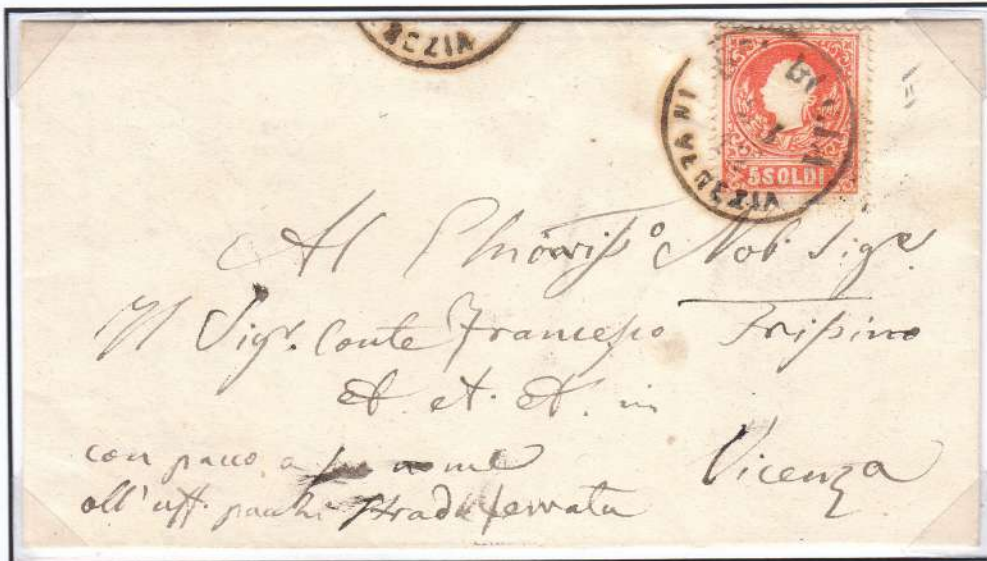 NEZIA
VENEZIA
5 SOLDI
Al Chiariss.º Nob. Sigr.
Il Sigr. Conte Francesco Trissino
et. et. et. in
Vicenza
con pacco a nome
all'uff. pacchi Strada ferrata